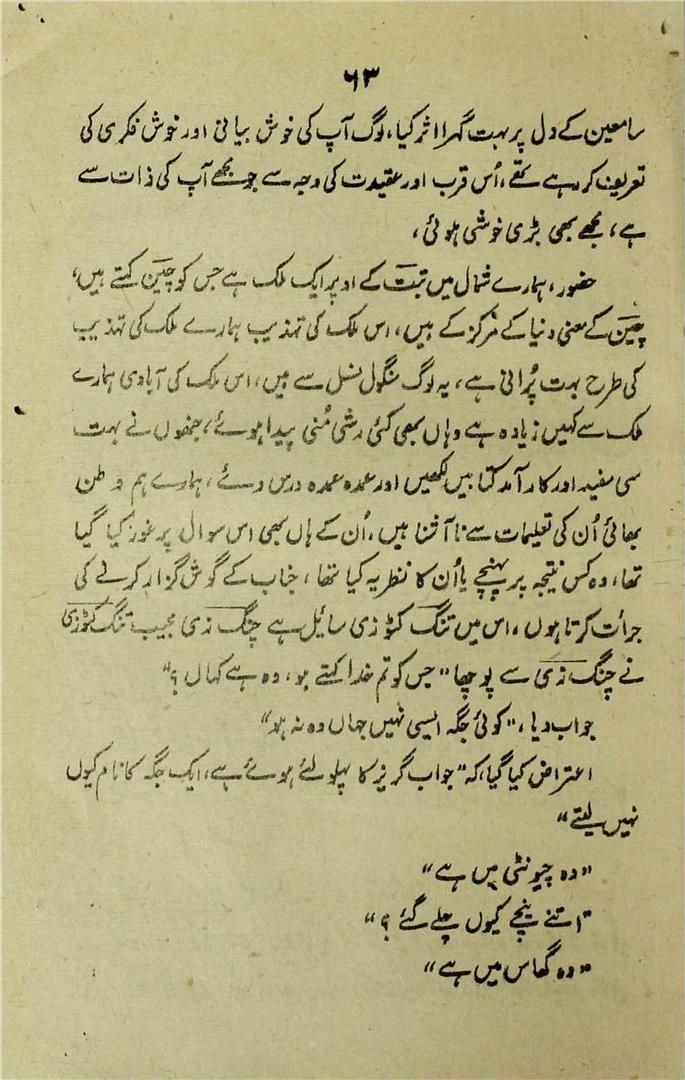 ۶۳
سامعین کے دل پر بہت گہرا اثر کیا، لوگ آپ کی خوش بیانی اور خوش فکری کی
تعریف کر رہے تھے، اُس قرب اور عقیدت کی وجہ سے جو مجھے آپ کی ذات سے
ہے، مجھے بھی بڑی خوشی ہوئی،
حضور، ہمارے شمال میں تبت کے اوپر ایک ملک ہے جس کو چین کہتے ہیں،
چین کے معنی دنیا کے مرکز کے ہیں، اس ملک کی تہذیب ہمارے ملک کی تہذیب
کی طرح بہت پُرانی ہے، یہ لوگ منگول نسل سے ہیں، اس ملک کی آبادی ہمارے
ملک سے کہیں زیادہ ہے وہاں بھی کئی رشی مُنی پیدا ہوئے، جنھوں نے بہت
سی مفید اور کار آمد کتابیں لکھیں اور عمدہ عمدہ درس دئے، ہمارے ہم وطن
بھائی اُن کی تعلیمات سے نا آشنا ہیں، اُن کے ہاں بھی اس سوال پر غور کیا گیا
تھا، وہ کس نتیجہ پر پہنچے یا اُن کا نظریہ کیا تھا، جناب کے گوش گزار کرنے کی
جرأت کرتا ہوں، اس میں تنگ کٹوزی سایل ہے چنگ زی مجیب تنگ کٹوزی
نے چنگ زی سے پوچھا "جس کو تم خدا کہتے ہو، وہ ہے کہاں ؟"
جواب دیا، "کوئی جگہ ایسی نہیں جہاں وہ نہ ہو"
اعتراض کیا گیا، کہ "جواب گریز کا پہلو لئے ہوئے ہے، ایک جگہ کا نام کیوں
نہیں لیتے"
"وہ چیونٹی میں ہے"
"اتنے نیچے کیوں چلے گئے ؟"
"وہ گھاس میں ہے"